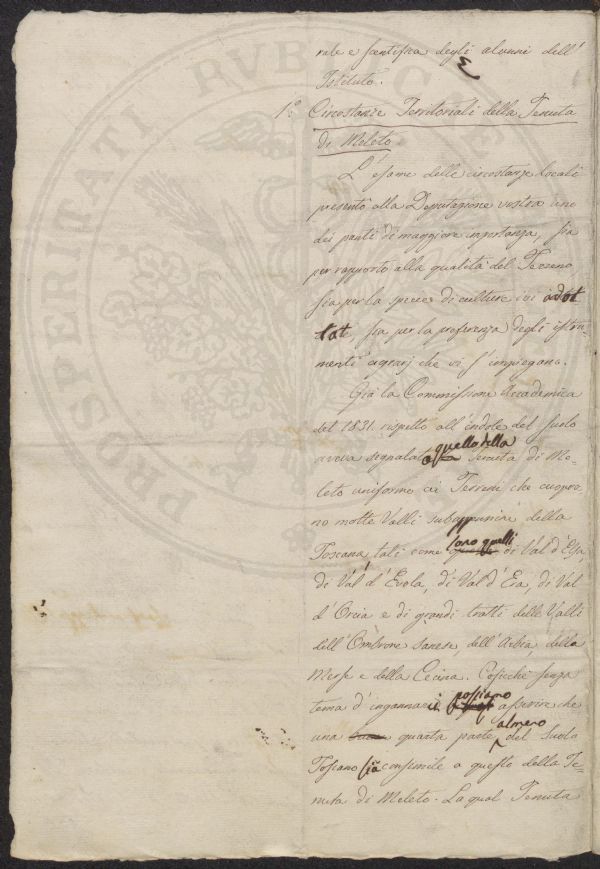 rale e scentifica degli alunni dell'
Istituto.
1.° Circostanze Territoriali della Tenuta
di Meleto.
L'esame delle circostanze locali
presentò alla Deputazione vostra uno
dei punti di maggiore importanza, sia
per rapporto alla qualità del Terreno
sia per la specie di culture ivi adot
tate, sia per la preferenza degli istru-
menti agrarj che vi s'impiegano.
Già la Commissione Accademica
del 1831. rispetto all'indole del suolo
quello della
aveva segnalato Tenuta di Me-
leto uniforme ai Terreni che cuopro-
no molte Valli subappennine della
sono quelli
Toscana, tali come di Val d'Elsa,
di Val d'Evola, di Val d'Era, di Val
d'Orcia e di grandi tratti delle Valli
dell'Ombrone sanese, dell'Arbia, della
Merse e della Cecina. Cosicchè senza
possiamo
tema d'ingannarci asserire che
almeno
una quarta parte del Suolo
Toscano sia consimile a quello della Te-
nuta di Meleto. La qual Tenuta
PROSPERITATI PVBLICAE